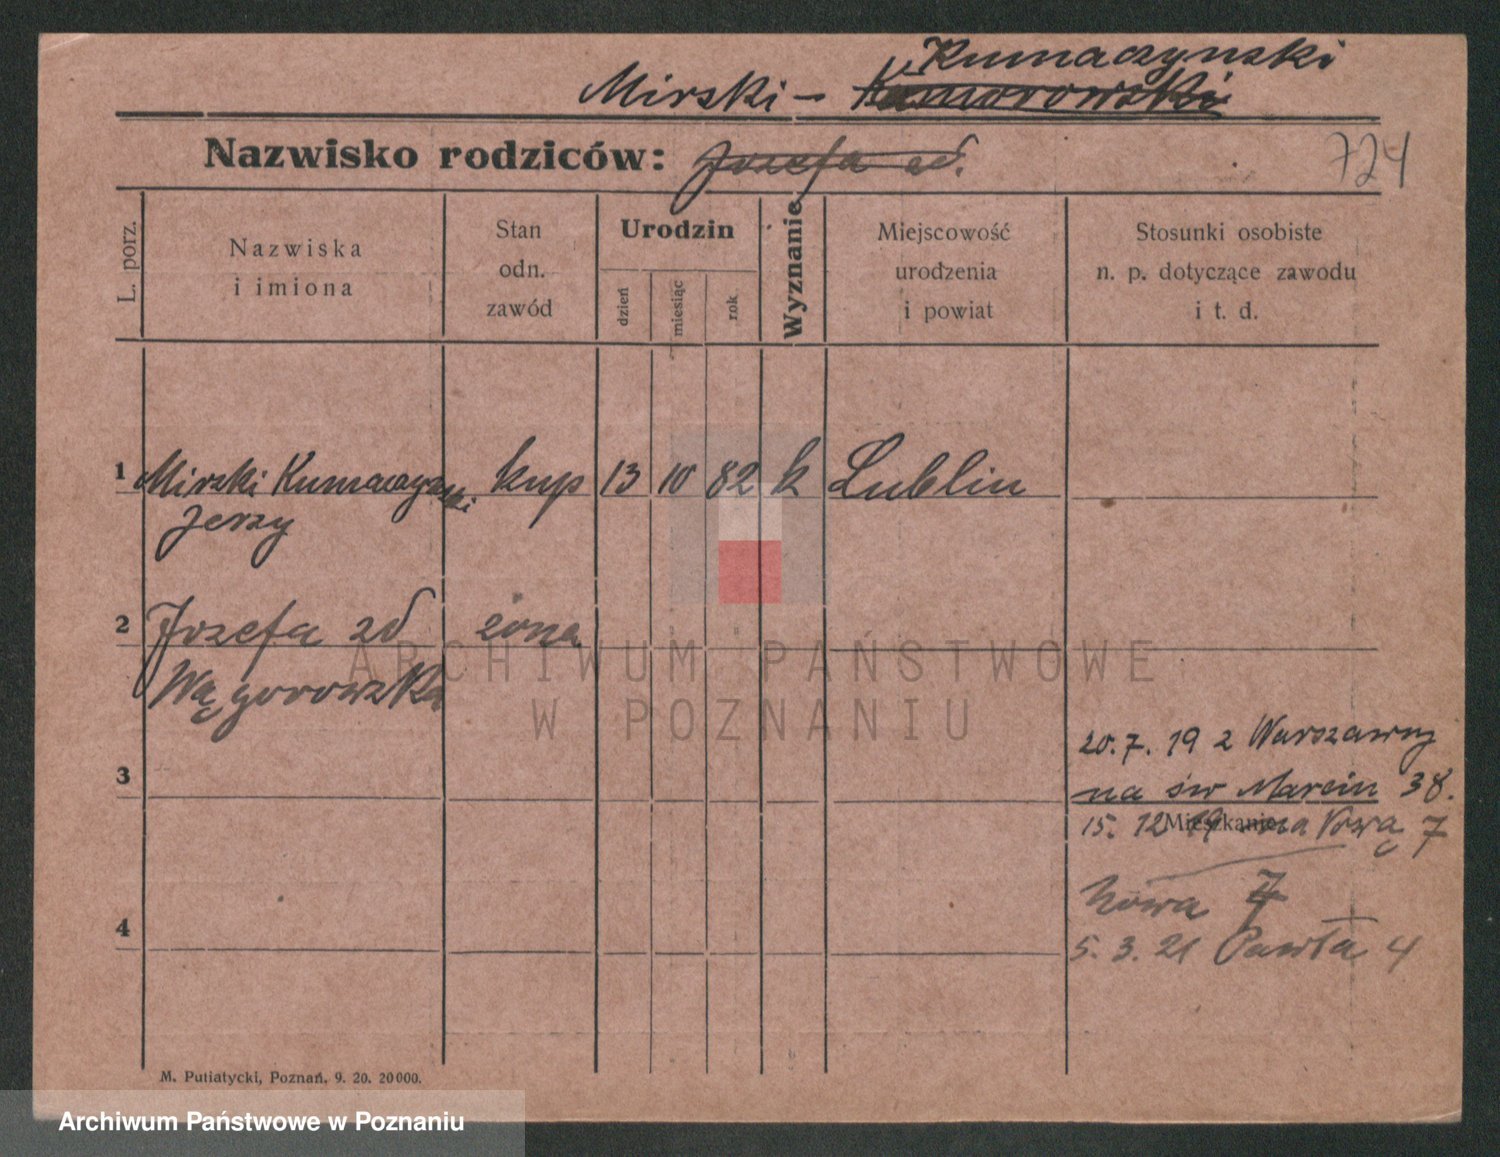 Kumaczynski
Mirski - Komorowski
Nazwisko rodziców: Józefa zd.
724
L. porz.
Nazwiska
i imiona
Stan
odn.
zawód
Urodzin
dzień
miesiąc
rok
Wyznanie
Miejscowość
urodzenia
i powiat
Stosunki osobiste
n. p. dotyczące zawodu
i t. d.
1 Mirski Kumaczynski kup 13 10 82 k Lublin
Jerzy
2 Józefa zd żona
Wągorowska
ARCHIWUM PAŃSTWOWE
W POZNANIU
20.7.19 z Warszawy
3
na św Marcin 38.
Mieszkanie:
15. 12 19 na Nową 7
Nowa 7
4
5. 3. 21 Pawła 4
M. Putiatycki, Poznań. 9. 20. 20000.
Archiwum Państwowe w Poznaniu